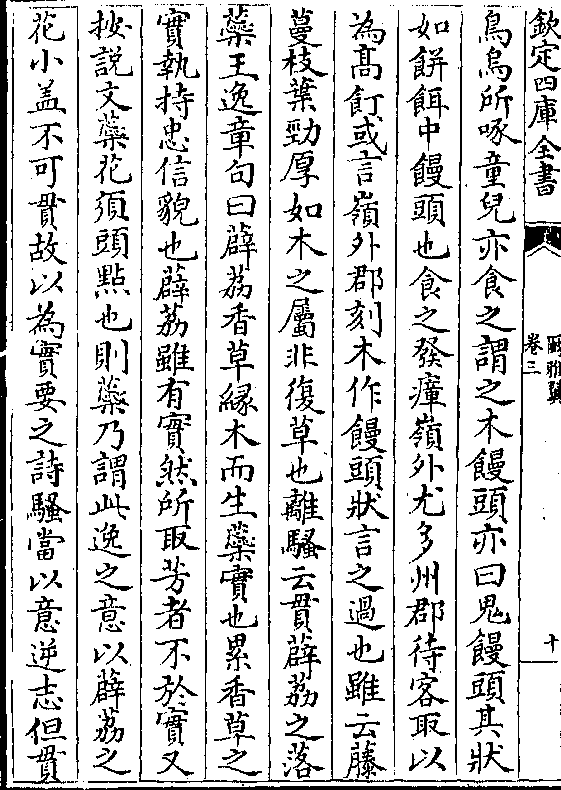 欽定四庫全書
爾雅翼
卷三
十
鳥烏所啄童兒亦食之謂之木饅頭亦曰鬼饅頭其狀
如餅餌中饅頭也食之發瘴嶺外尤多州郡待客取以
為髙飣或言嶺外郡刻木作饅頭狀言之過也雖云藤
蔓枝葉勁厚如木之屬非復草也離騷云貫薜荔之落
蘂王逸章句曰薜荔香草縁木而生蘂實也累香草之
實執持忠信貌也薜荔雖有實然所取芳者不於實又
按說文蘂花須頭點也則蘂乃謂此逸之意以薜荔之
花小盖不可貫故以為實要之詩騷當以意逆志但貫